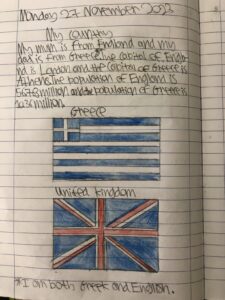 Monday 27 November 2023
My country
My mum is from England and my
dad is from Greece. The capital of Engla
nd is London and the capital of Greece is
Athens. The population of England is
and the population of Greece is
million.
Greece
United Kingdom
I am both Greek and English.